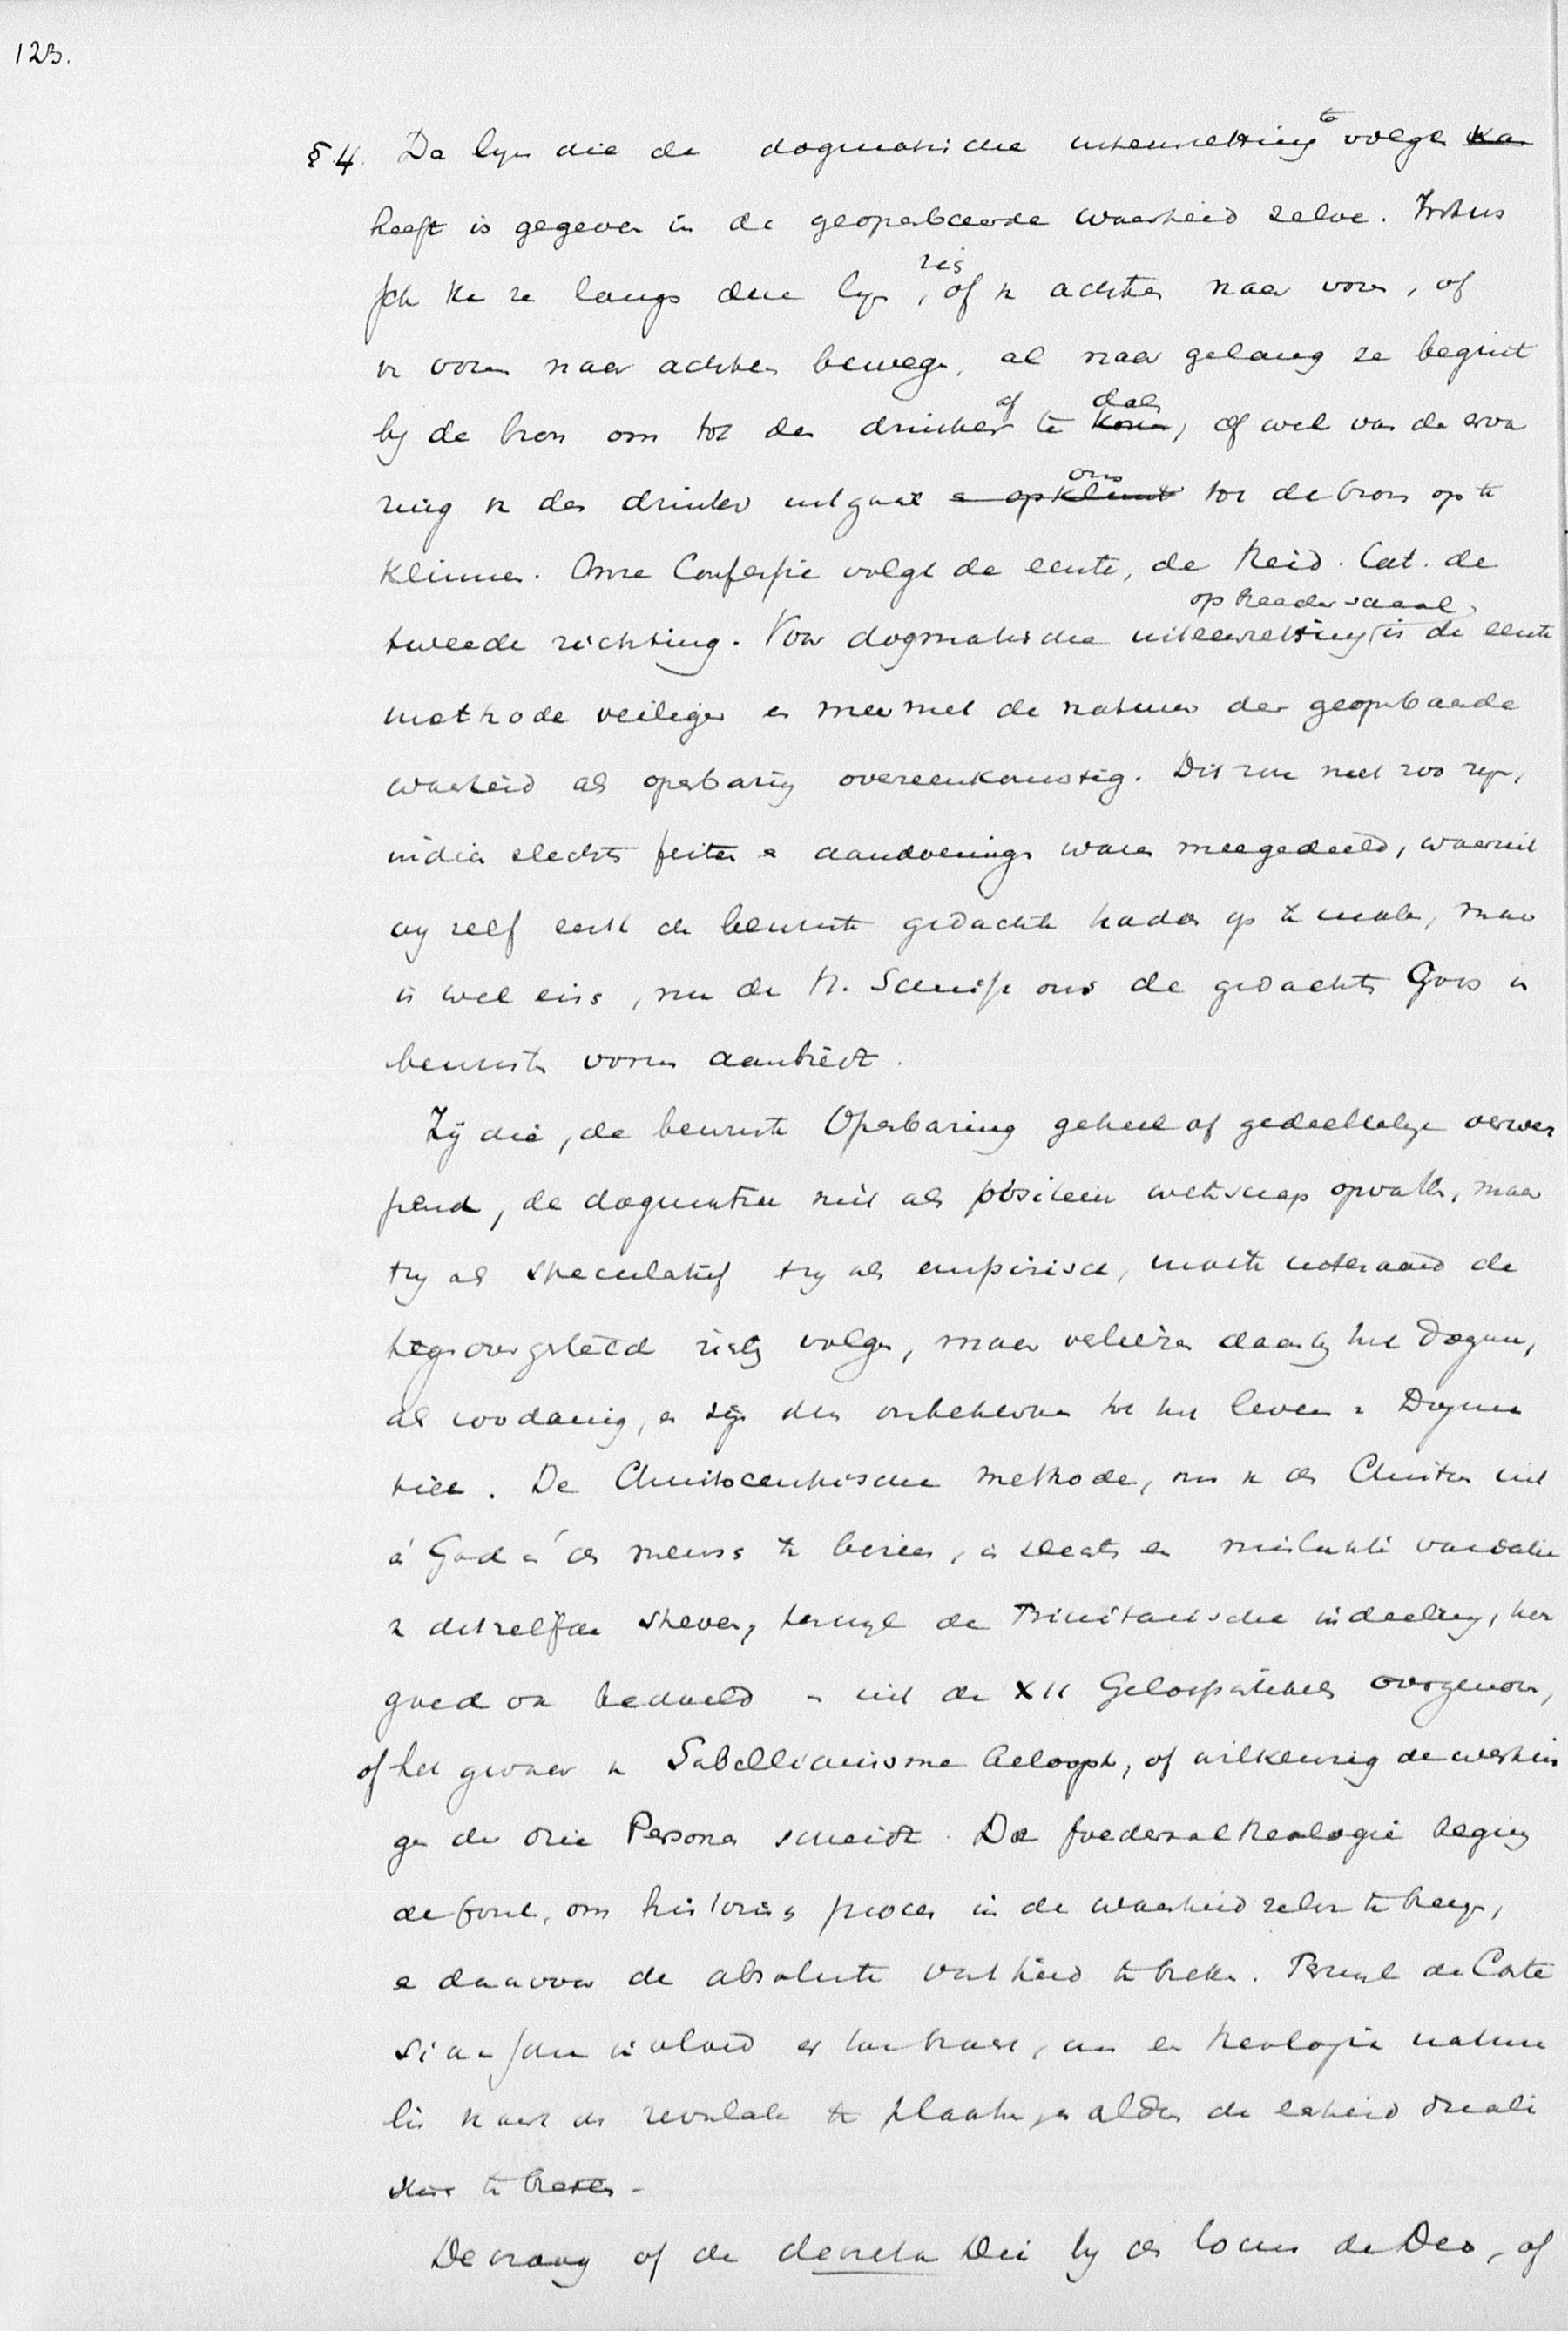 123.
§ 4. De lijn die de dogmatische uiteenzetting te volgen
heeft is gegeven in de geopenbaarde waarheid zelve. Intus
schen kan ze langs deze lijn zich, of v achter naar voren, of
v voren naar achter bewegen, al naar gelang ze begint
bij de bron om tot den drinker af te dalen, of wel van de erva
ring v den drinker uitgaat om tot de bron op te
klimmen. Onze Confessie volgt de eerste, de Heid. Cat. de
tweede richting. Voor dogmatische uiteenzetting is de eerste
methode veiliger en meer met de natuur der geopenbaarde
waarheid als openbaring overeenkomstig. Dit zou niet zoo zijn,
indien slechts feiten en aandoeningen waren meegedeeld, waaruit
wij zelf eerst de bewuste gedachte hadden op te maken, maar
is wel eisch, nu de H. Schrift ons de gedachte Gods in
bewusten vorm aanbiedt.
Zij die, de bewuste Openbaring geheel of gedeeltelijk verwer
pend, de dogmatiek niet als positieve wetenschap opvatten, maar
tzij als speculatief tzij als empirisch, moeten uiteraard de
tegenovergestelde richting volgen, maar verliezen daarbij het Dogma,
als zoodanig, en zijn dus onbekwaam tot het leveren Dogma
tiek. De Christocentrische methode, om v den Christus uit
én God én den mensch te bezien, is slechts een mislukte variatie
v ditzelfde streven, terwijl de Trinitarische indeeling, hoe
goed ook bedoeld en uit de XII Geloofsartikelen overgenomen,
of het gevaar v Sabellianisme beloopt, of willekeurig de werkin
gen der drie Personen scheidt. De foederaaltheologie beging
de fout, om historisch proces in de waarheid zelve te brengen,
en daarvoor de absolute vastheid te breken. Terwijl de Carte
siaansche invloed er toe bracht, om een theologia natura
lis naast de revelata te plaatsen, en aldus de eenheid dualis
tisch te breken.
De vraag of de decreta Dei bij den locus de Deo, of